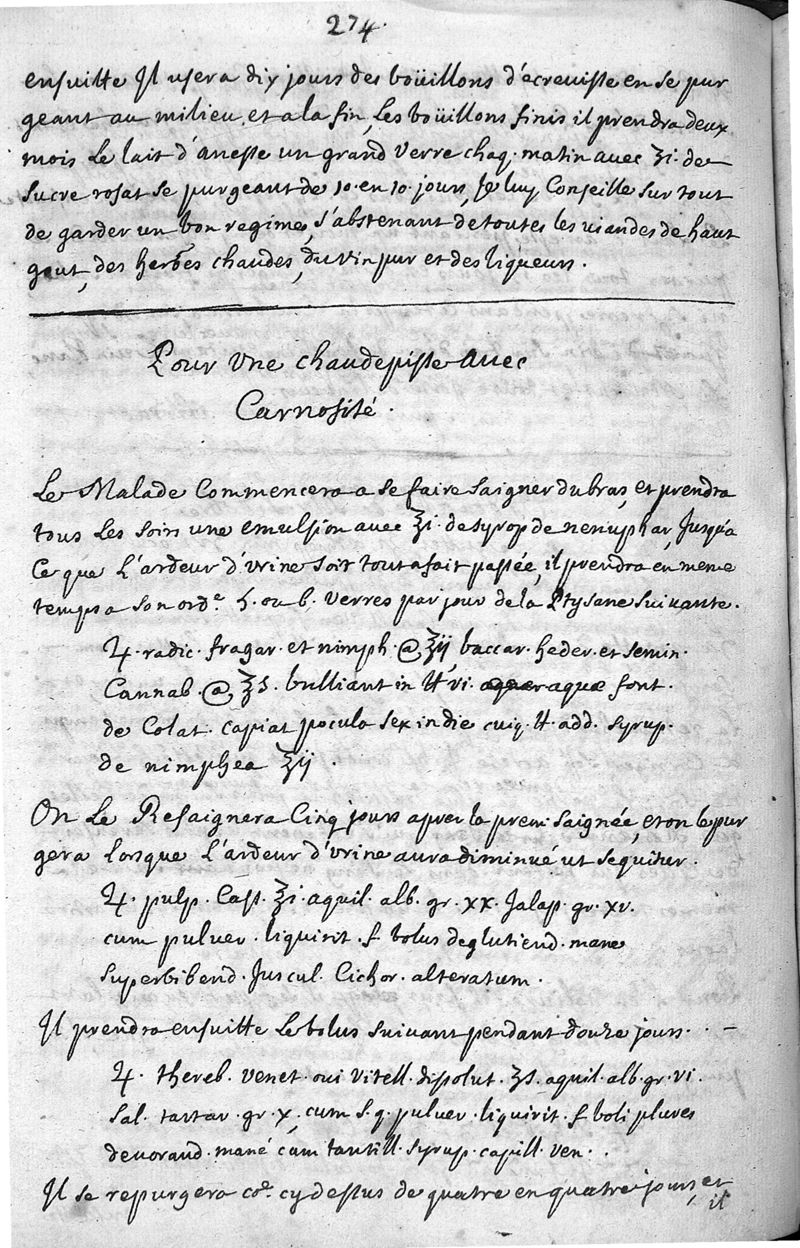 274.
ensuitte Il usera dix jours des boüillons d'ecrevisse en se pur
geant au milieu et a la fin, Les boüillons finis il prendra deux
mois Le lait d'anesse un grand verre chaq. matin avec ʒi. de
sucre rosat se purgeant de 10. en 10. jours, Je luy Conseille sur tout
de garder un bon regime, s'abstenant de toutes les viandes de haut
gout, des herbes chaudes, du vin pur et des liqueurs.
Pour Une chaudepisse avec
Carnosité.
Le Malade Commencera a se faire saigner du bras, et prendra
tous Les soirs une emulsion avec ℥i. de syrop de nenuphar, Jusqu'a
Ce que L'ardeur d'urine soit tout a fait passée, il prendra en meme
temps a son ordre. 5. ou 6. verres par jour de la Ptysane suivante.
♃. radic. fragar. et nimph. @ ℥ij, baccar. heder. et semin.
Cannab. @, ℥s. bulliant in ℔ vi. aquæ font.
de Colat. capiat pocula sex in die cuiq. ℔. add. syrup.
de nimphea ℥ij.
On Le Resaignera Cinq jours apres la prem. saignée, et on le pur
gera Lorsque L'ardeur d'urine aura diminué ut sequitur.
♃. pulp. Cass. ℥i. aquil. alb. gr. xx. Jalap. gr. xv.
cum pulver. liquirit. f. bolus deglutiend. mane
superbibend. Juscul. Cichor. alteratum.
Il prendra ensuitte Le bolus suivant pendant douze jours. –
♃. thereb. venet. ovi vitell. dissolut. ʒs. aquil. alb. gr. vi.
sal. tartar. gr. x. cum s. q. pulver. liquirit. f. boli plures
devorand. mané cum tantill. syrup. capill. ven.
Il se repurgera coe. cy dessus de quatre en quatre jours, et
il